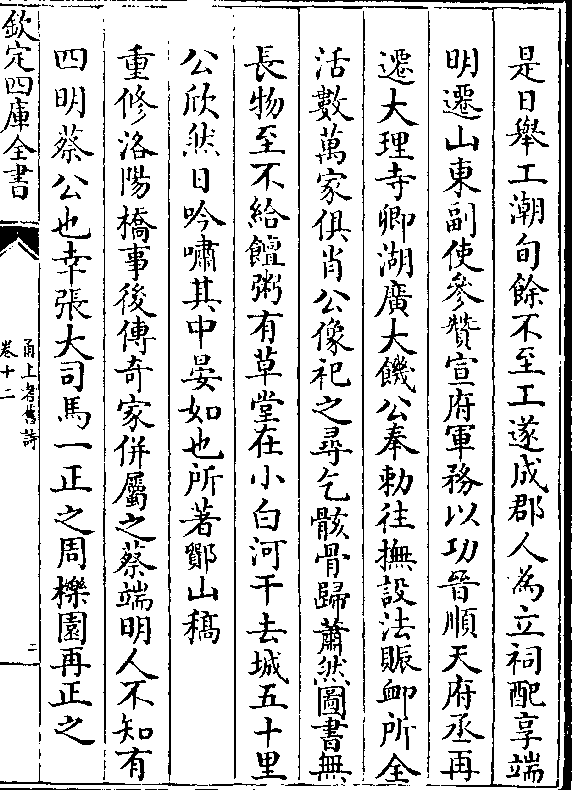 是日舉工潮旬餘不至工遂成郡人為立祠配享端
明遷山東副使參贊宣府軍務以功晉順天府丞再
遷大理寺卿湖廣大饑公奉勅往撫設法賑卹所全
活數萬家俱肖公像祀之尋乞骸骨歸蕭然圖書無
長物至不給饘粥有草堂在小白河干去城五十里
公欣然日吟嘯其中晏如也所著鄮山稿
重修洛陽橋事後傳奇家併屬之蔡端明人不知有
四明蔡公也幸張大司馬一正之周櫟園再正之
欽定四庫全書
甬上耆舊詩
卷十二
二